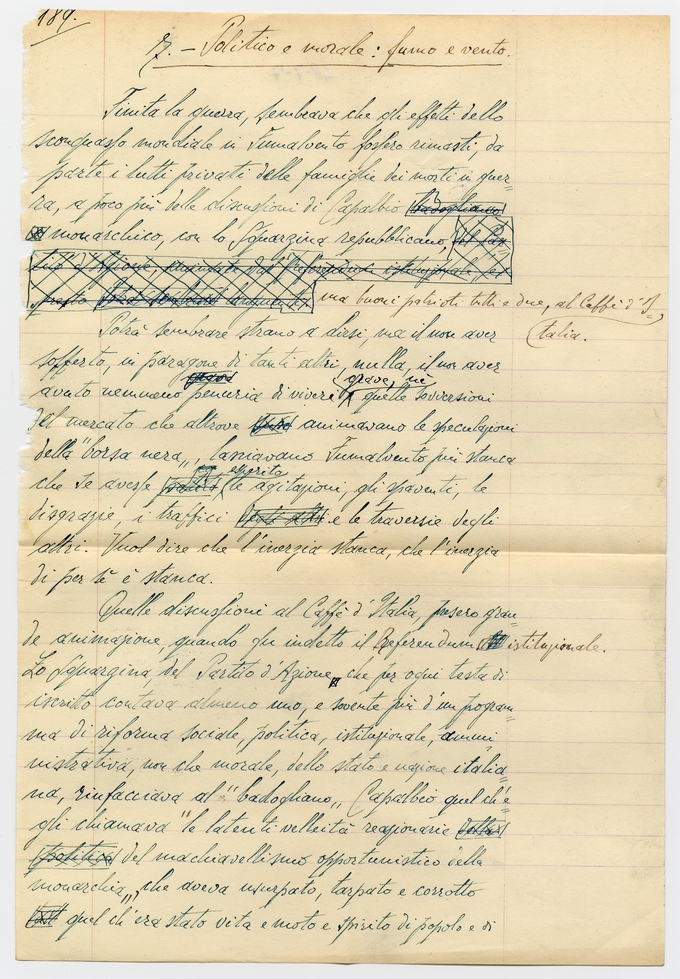 189.
7. – Politico e morale: fumo e vento.
Finita la guerra, sembrava che gli effetti dello
sconquasso mondiale in Fumalvento fossero rimasti, da
parte i lutti privati delle famiglie dei morti in guer=
ra, a poco più delle discussioni di Capalbio badogliano
monarchico, con lo Squarzina repubblicano,
ma buoni patrioti tutti e due, al Caffè d'I=
talia.
Potrà sembrare strano a dirsi, ma il non aver
sofferto, in paragone di tanti altri, nulla, il non aver
avuto nemmeno penuria di viveri grave, nè quelle sovversioni
del mercato che altrove animavano le speculazioni
della "borsa nera„, lasciavano Fumalvento più stanca
che se avesse esperito le agitazioni, gli spaventi, le
disgrazie, i traffici e le traversie degli
altri. Vuol dire che l'inerzia stanca, che l'inerzia
di per sè è stanca.
Quelle discussioni al Caffè d'Italia, presero gran=
de animazione, quando fu indetto il Referendum istituzionale.
Lo Squarzina del Partito d'Azione, che per ogni testa di
iscritto contava almeno uno, e sovente più d'un program=
ma di riforma sociale, politica, istituzionale, ammi=
nistrativa, non che morale, dello stato e nazione italia=
na, rinfacciava al "badogliano„ Capalbio quel ch'e=
gli chiamava "le latenti velleità reazionarie
politica del machiavellismo opportunistico della
monarchia„, che aveva usurpato, tarpato e corrotto
quel ch'era stato vita e moto e spirito di popolo e di